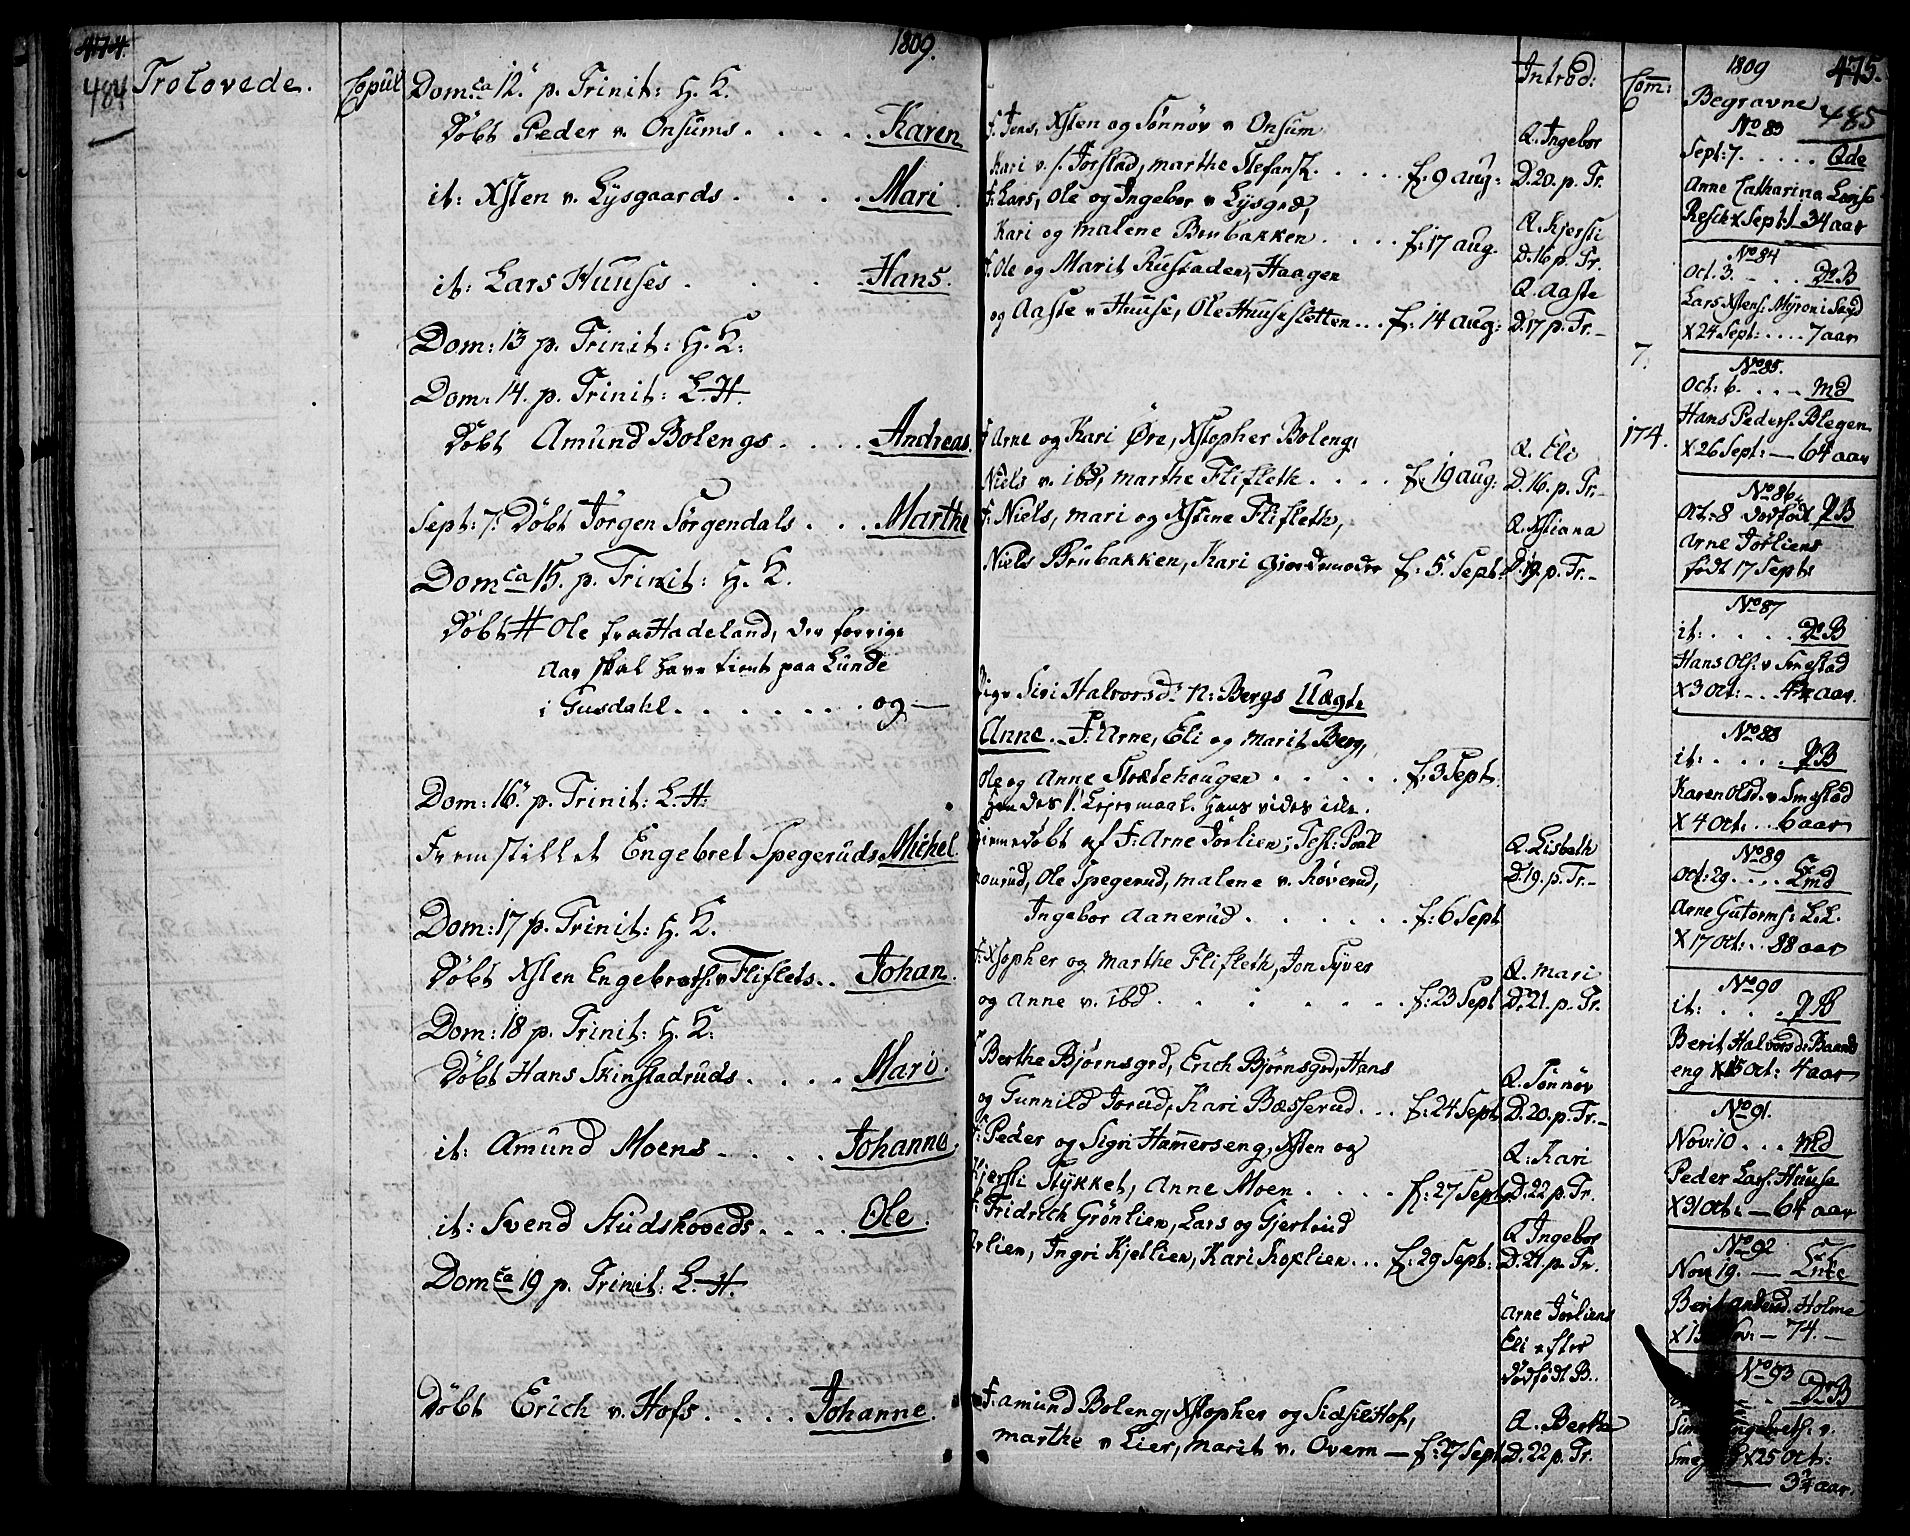 474
484
Trolovede.
Copul
1809.
Dom:ca 12. p. Trinit: H. K.
Døbt Peder v. Onsums . . . . . Karen
it: Xsten v. Lysgaards . . . . Mari
it: Lars Huuses . . . . Hans.
Dom: 13 p. Trinit: H. K:
Dom: 14. p. Trinit: L. H.
Døbt Amund Bolengs . . . . Andreas.
Sept: 7. Døbt Jørgen Sørgendals . . . Marthe
Dom:ca 15. p. Trinit: H. K.
Døbt # Ole fra Hadeland, der forrige
Aar skal have tient paa Lunde
i Gusdahl . . . . . . . og —
Dom: 16. p. Trinit: L. H:
Fremstillet Engebret Spegeruds Michel.
Dom: 17 p. Trinit: H. K.
Døbt Xsten Engebrets. v Fliflets . . Johan.
Dom: 18 p. Trinit: H. K.
Døbt Hans Skinstadruds . . . . Mari.
it: Amund Moens . . . . Johanne.
it: Svend Studshoveds . . . . Ole.
Dom:ca 19 p. Trinit: L. H.
Døbt Erich v. Hofs . . . . Johanne.
F. Jens, Xsten og Sønnøv v Onsum
Kari v. Jorstad, marthe Stefans. . . . . f. 9 aug:
F. Lars, Ole og Ingebor v Lysgrd,
Kari og malene Brubakken . . . . f: 17 aug.
F. Ole og Marit Rustaden, Haagen
og Aaste v Huuse, Ole Huusesletten . . . f: 14 aug:
F Arne og Kari Øre, Xstopher Boleng,
Niels v. ibd, marthe Flifleth . . . . f: 19 aug:
F: Niels, mari og Xstine Flifleth,
Niels Brubakken, Kari Giordemoder f: 5 Sept:
Pige Siri Halvorsd. n: Bergs Uægte
Anne. F: Arne, Eli og Marit Berg,
Ole og Anne Slættehougen . . . . . f: 3 Sept.
Hendes 1. Leiermaal. Hans vides ikke.
Hiemmedøbt af F. Arne Jørlien; Test: Poal
Ole Spegerud, malene v. Røverud,
Ingebor Aanerud . . . . . . f: 6 Sept
F. Xstopher og Marthe Flifleth, Jon Syver
og Anne v. ibd . . . . . . f: 23 Sept
F Berthe Bjørnsgrd, Erich Bjørnsgrd, Hans
og Gunnild Jorud, Kari Bæsserud . . . f: 24 Sept
F: Peder og Sigri Hammerseng, Xsten og
Kjersti Stykket, Anne Moen . . . . f: 27 Sept
F. Fridrich Grønlien, Lars og Gjertrud
Ingri Kjellien, Kari Koxlien . . . f: 29 Sept:
F Amund Boleng, Xstopher og Sidsil Hof,
marthe v Lier, marit v. Overn — f: 27 Sept
Introd:
Q. Ingebor
D. 20. p. Tr.
Q. Kjersti
D. 16 p. Tr.
Q. Aaste
D. 17 p. Tr. –
Q. Eli
D. 16. p. Tr. –
Q. Xstiana
D. 19. p. Tr. –
Q. Lisbeth
D. 19. p. Tr. –
Q. mari
D. 21. p. Tr.
Q. Sønnøv
D. 20. p. Tr. –
Q. Kari
D. 22 p. Tr.
Q Ingebor
D. 21. p. Tr.
Arne Jørliens
Eli efter
dødfødt B..
Q. Berthe
D. 22 p. Tr.
Com:
7.
174.
1809
475.
485
Begravne
No 83
Sept: 7. . . . . . Qde
Anne Catharina Lovise
X Sept: 34 aar
No 84
Oct. 3. – . . D B
Lars Xstens. Myroni
X 24 Sept: . . . . 7 aar
No 85.
Oct: 6. . . . – Md
Hans Peders. Blegen
X 26 Sept: — 64 aar
No 86
Oct: 8 Dødfødt P B
Arne Jørliens
født 17 Sept:
No 87
it: . . . . . D B
Hans Ols: v Smestad
X 3 Oct: – . aar
No 88
it: . . . . . P B
Karen Olsd. v Smestad
X 4 Oct: . . 6 aar
No 89
Oct: 29. . . . . Emd
Arne Gutorms: L. L.
X 17 Oct: . . 88 aar
No 90
it: . . . P B
Berit Halvorsd: Baands
eng X 15 Oct: 4 aar
No 91.
Nov: 10 . . . Md
Peder Lars. Huuse
X 31 Oct: — 64 aar
No 92
Nov 19. — Enke
Berit Andersd. Holme
— 74. —
No 93
D B
Engebrets: v.
X 25 Oct:
— 3 3/4 aar.